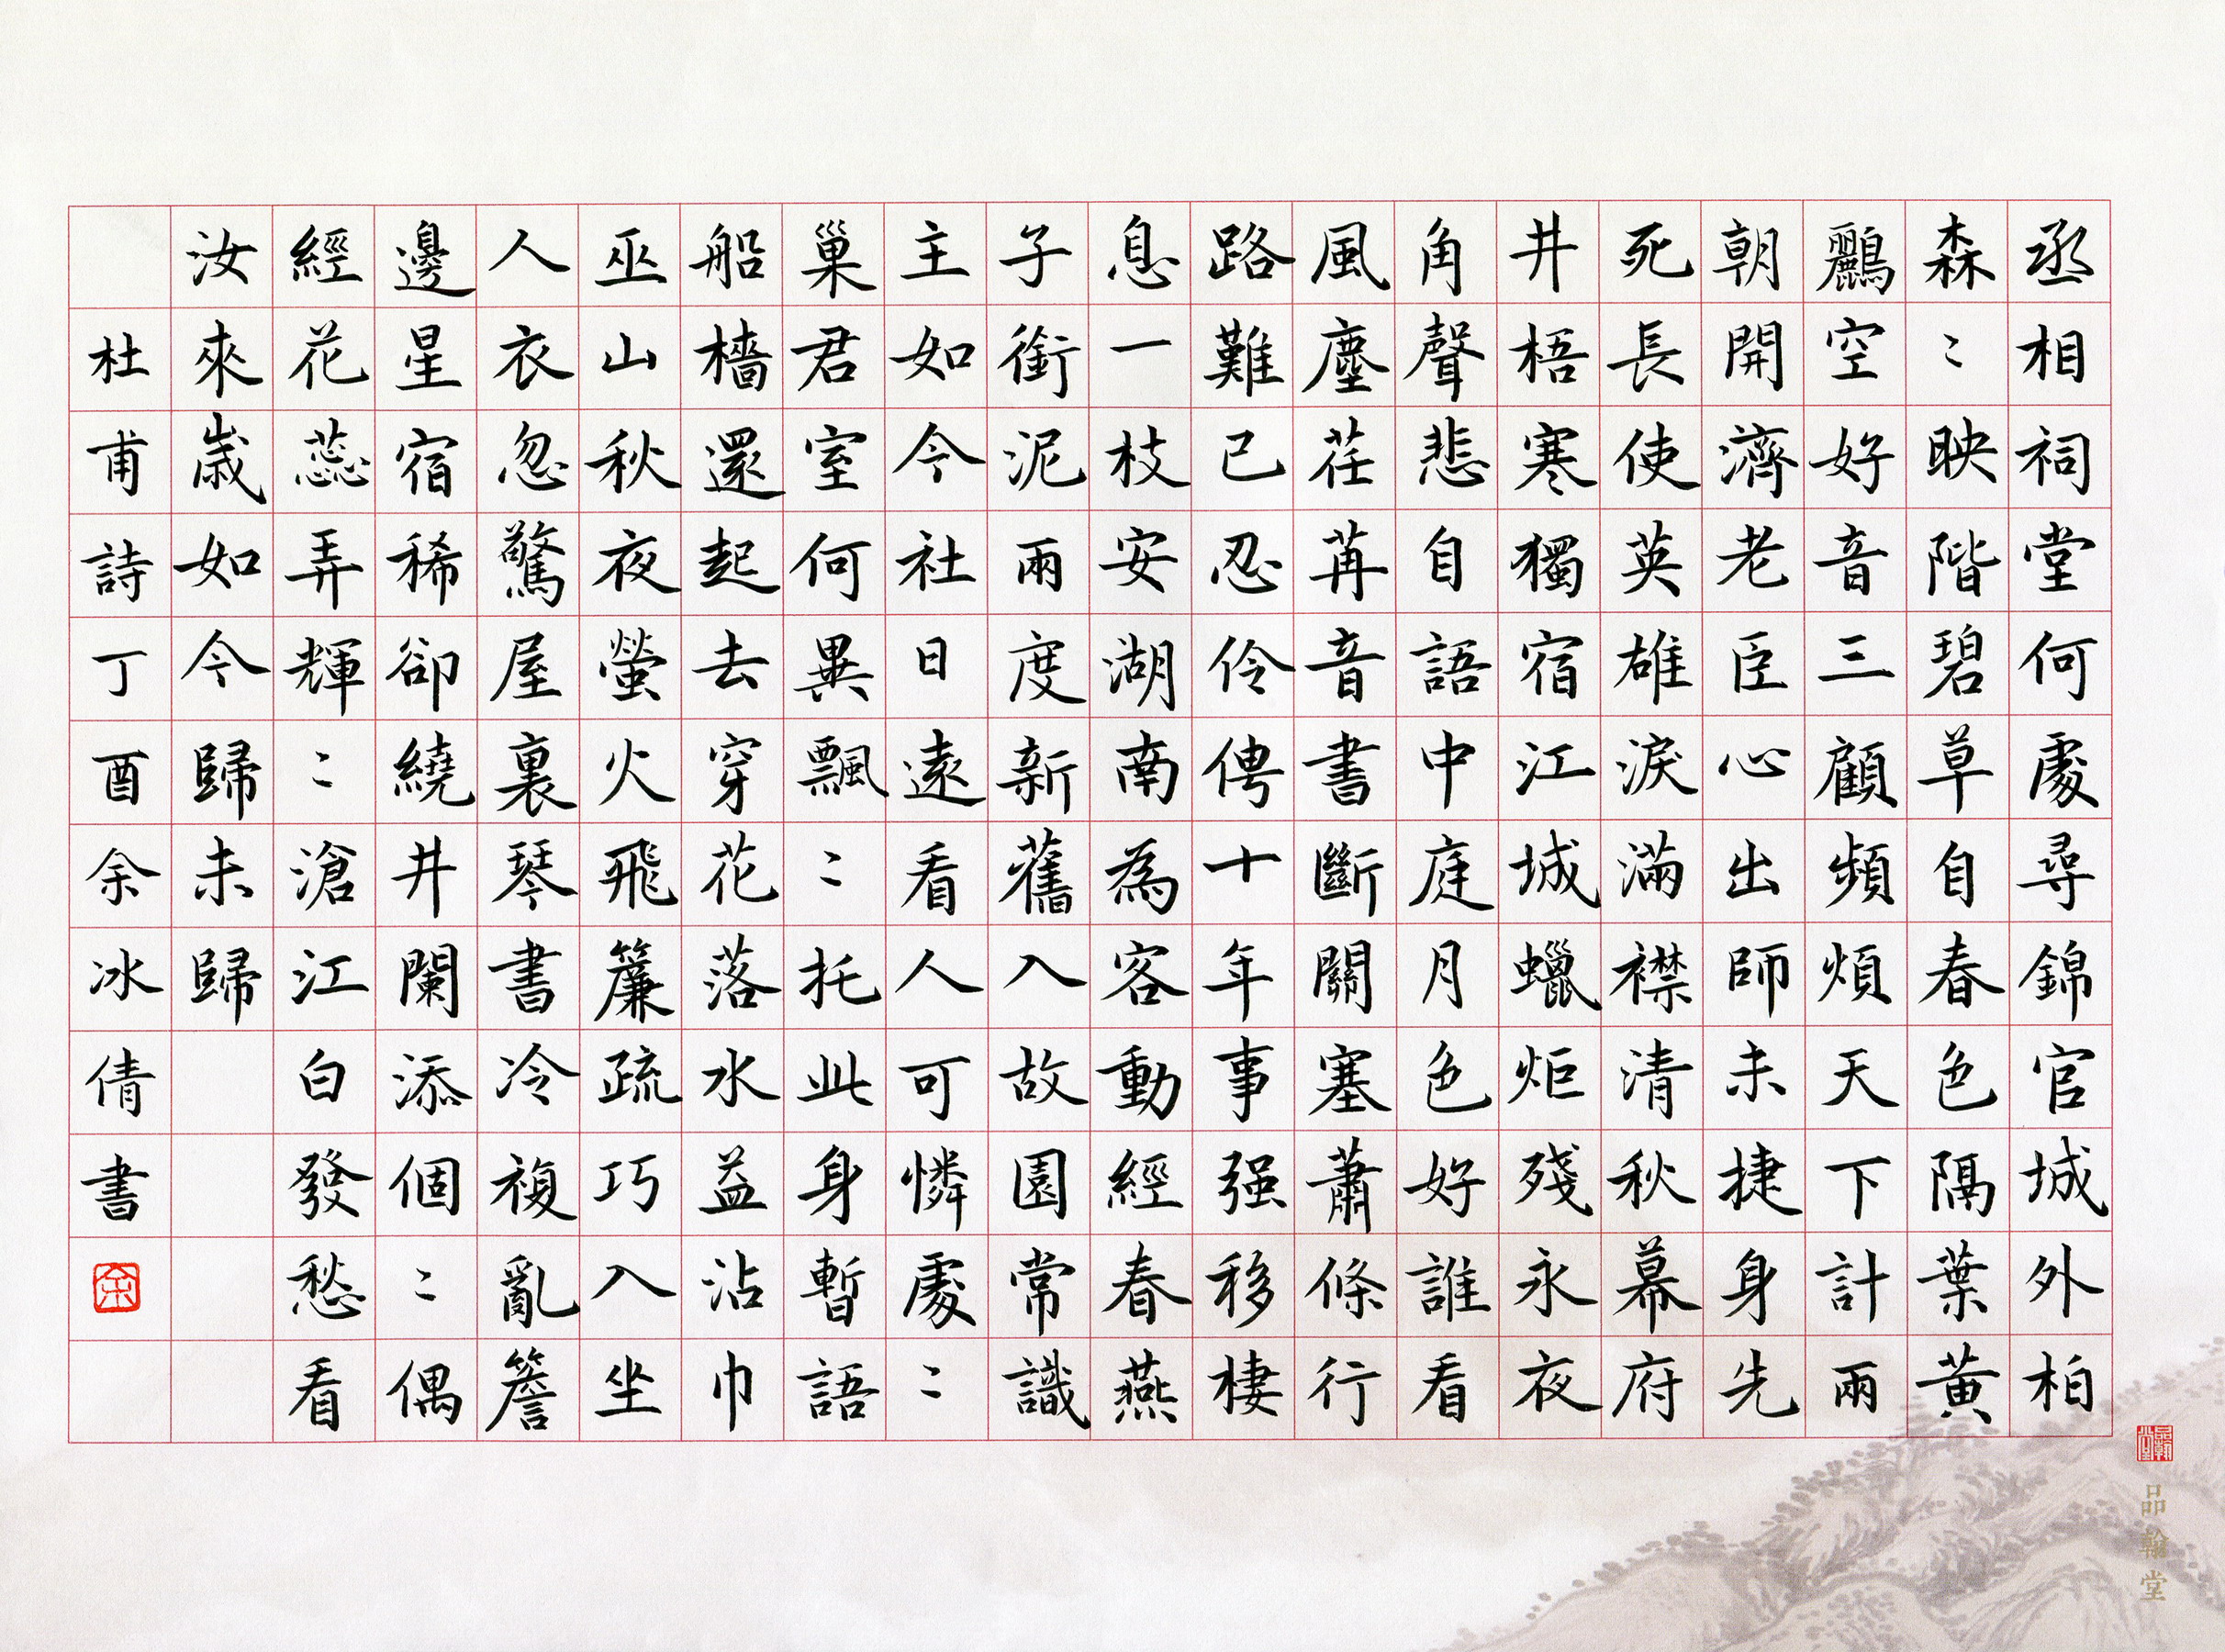 丞相祠堂何處尋錦官城外柏
森〻映階碧草自春色隔葉黃
鸝空好音三顧頻煩天下計兩
朝開濟老臣心出師未捷身先
死長使英雄淚滿襟清秋幕府
井梧寒獨宿江城蠟炬殘永夜
角聲悲自語中庭月色好誰看
風塵荏苒音書斷關塞蕭條行
路難已忍伶俜十年事强移棲
息一枝安湖南為客動經春燕
子銜泥兩度新舊入故園常識
主如今社日遠看人可憐處〻
巢君室何異飄〻托此身暫語
船檣還起去穿花落水益沾巾
巫山秋夜螢火飛簾疏巧入坐
人衣忽驚屋裏琴書冷複亂簷
邊星宿稀卻繞井闌添個〻偶
經花蕊弄輝〻滄江白發愁看
汝來歲如今歸未歸
杜甫詩丁酉余冰倩書
余
品翰堂
品翰堂